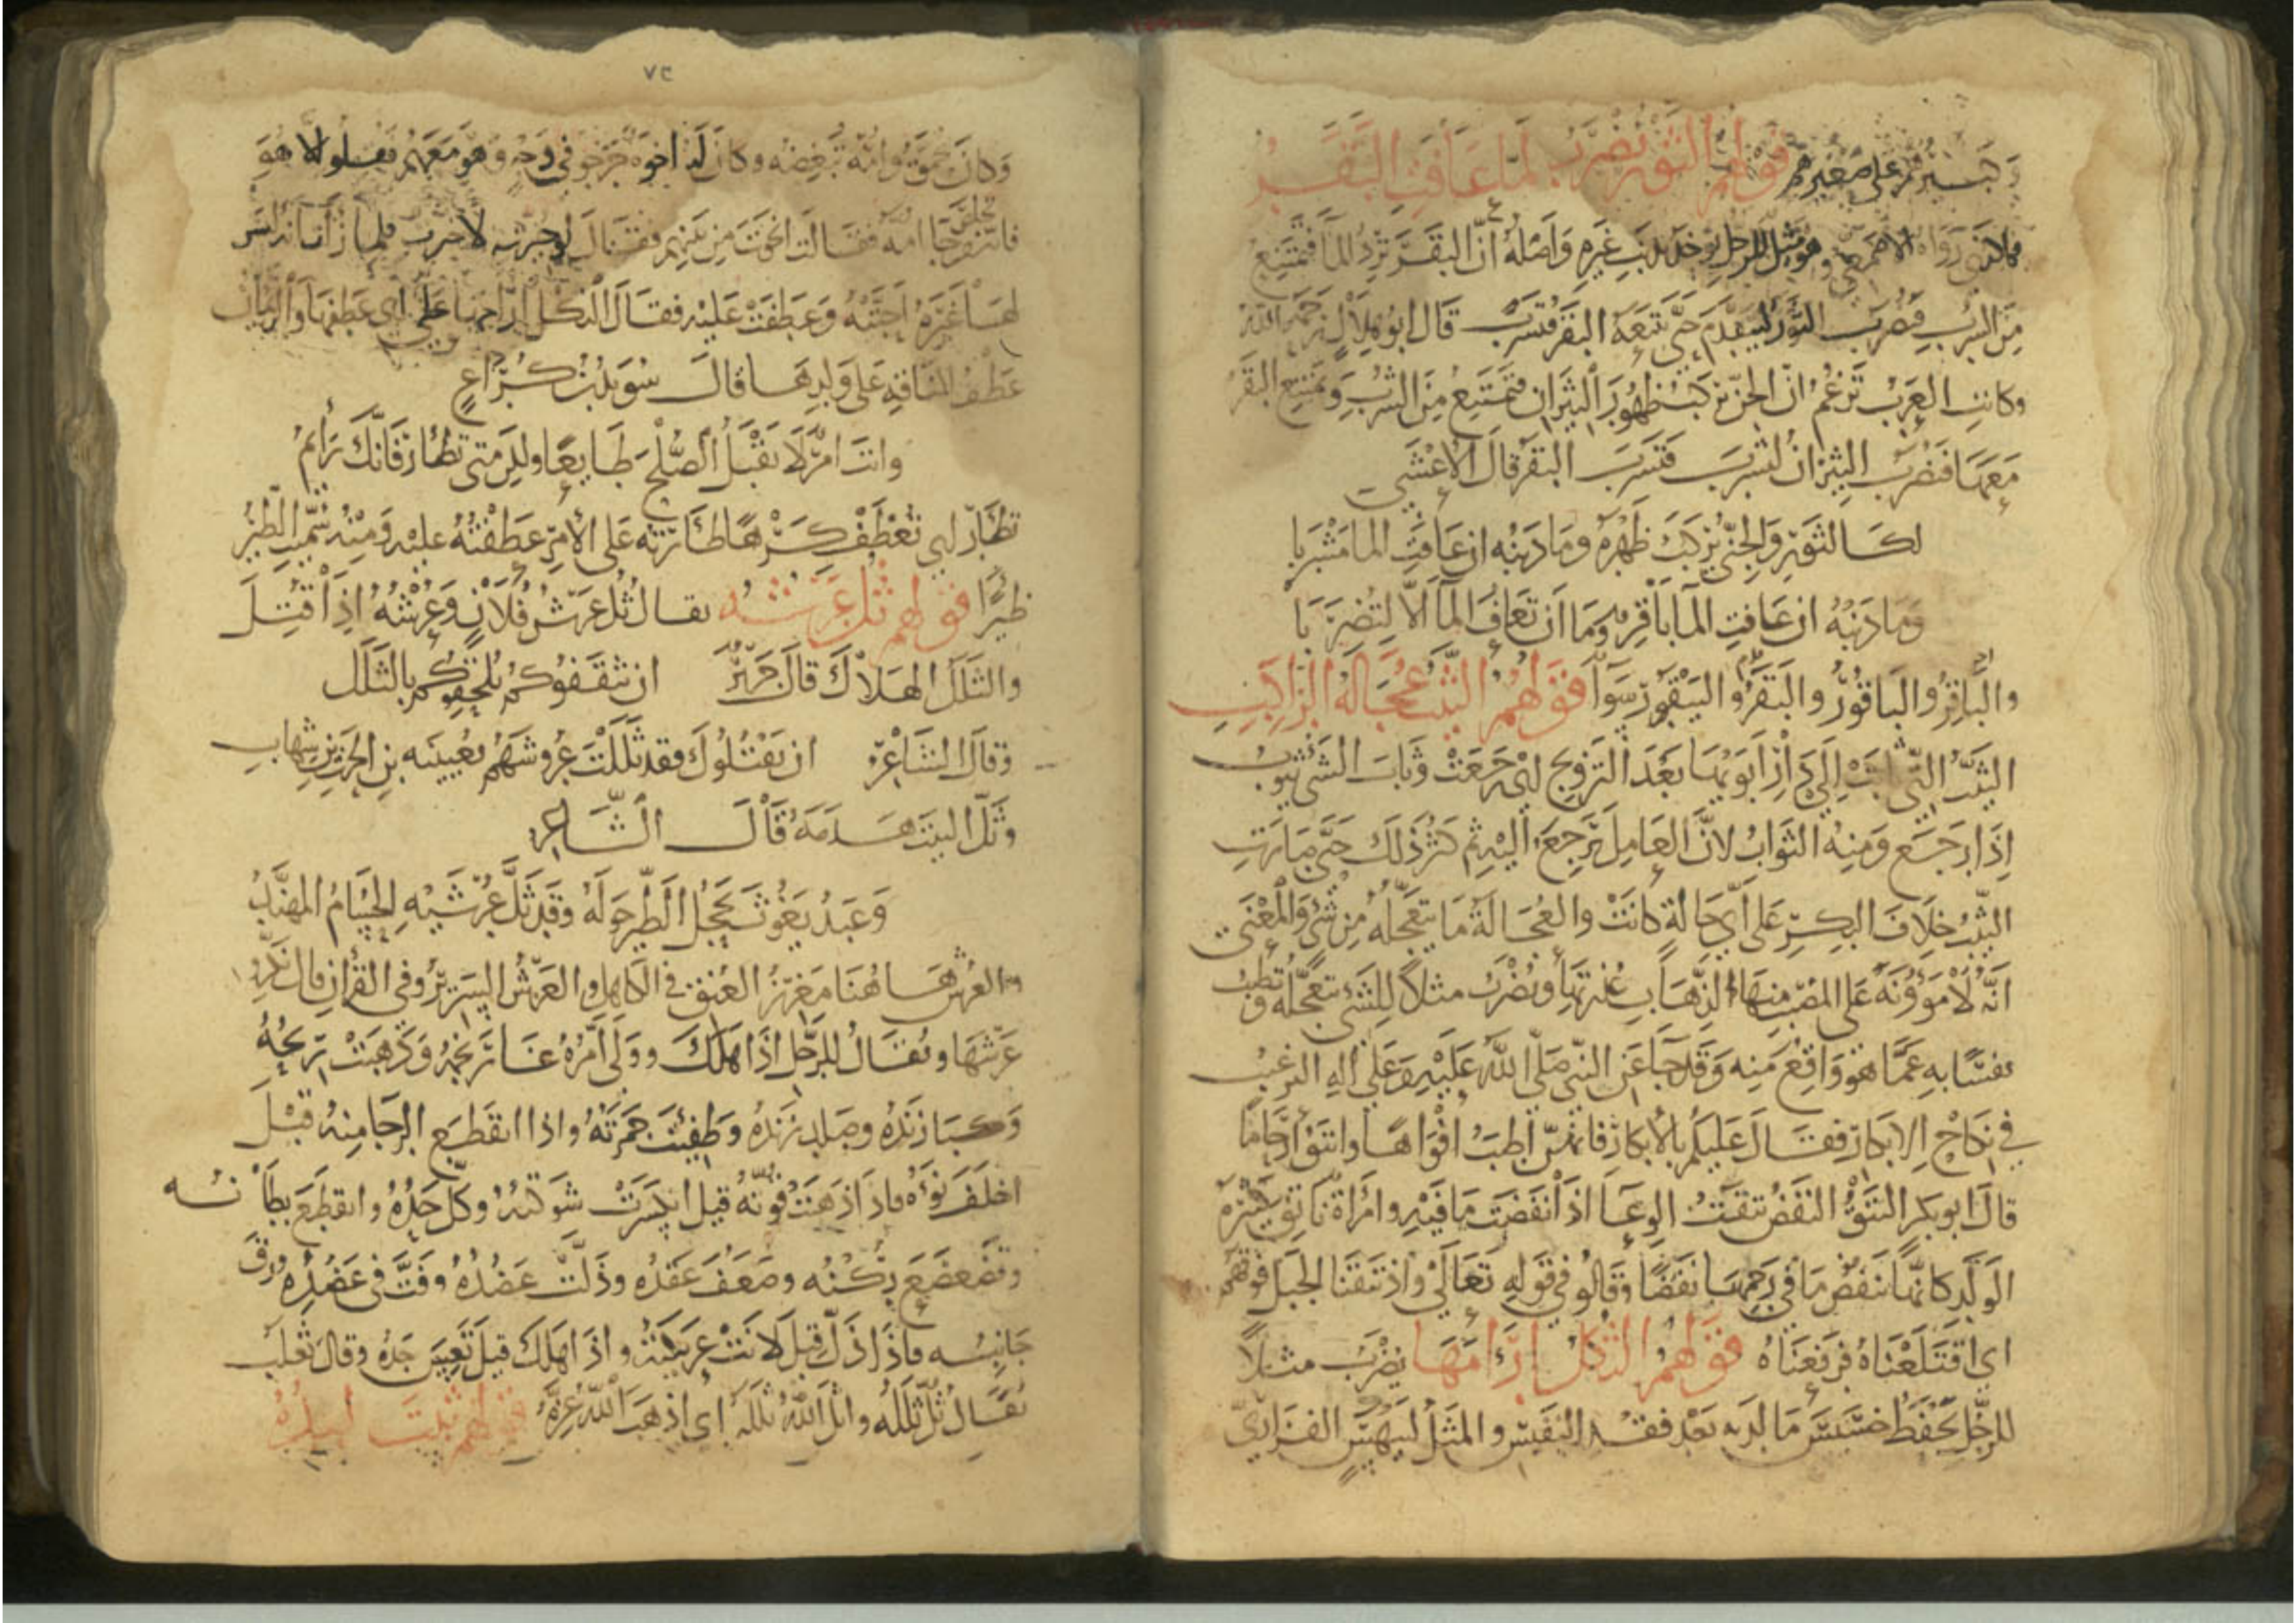 وكبيرهم على صغيرهم قولهم الثور يضرب لما عافت البقر
هكذا رواه الاصمعي وهو مثل للرجل يوخذ بذنب غيره واصله ان البقر ترد الما فتمتنع
من الشرب فيضرب الثور ليتقدم حتى تتبعه البقر فتشرب قال ابو هلال رحمه الله
وكانت العرب تزعم ان الجن تركب ظهور الثيران فتمتنع من الشرب وتمتنع البقر
معها فتضرب الثيران لتشرب فتشرب البقر قال الاعشى
لكالثور والجني يركب ظهره وما ذنبه ان عافت الما مشربا
وما ذنبه ان عافت الما باقر وما ان تعاف الما الا ليضربا
والباقر والباقور والبقر والبيقور سوآ قولهم الثيب عجالة الراكب
الثيب التي ابت الى دار ابويها بعد التزويج اي رجعت وثاب الشي يثوب
اذا رجع ومنه الثواب لان العامل يرجع اليه ثم كثر ذلك حتى صارت
الثيب خلاف البكر على اي حالة كانت والعجالة ما يتعجله من شي والمعنى
انه لا موونة على المصيب منها لذهاب عذرتها ويضرب مثلا للشي تتعجله وتطيب
نفسا به عما هو واقع منه وقد جا عن النبي صلى الله عليه وعلى اله الترغيب
في نكاح الابكار فقال عليكم بالابكار فانهن اطيب افواها وانتق ارحاما
قال ابو بكر النتق النفض نتقت الوعا اذا نفضت ما فيه وامراة ناتق كثيرة
الولد كانها تنفض ما في رحمها نفضا وقالو في قوله تعالى واذ نتقنا الجبل فوقهم
اي اقتلعناه فرفعناه قولهم الثكل ارامها يضرب مثلا
للرجل يحفظ خسيس ما لديه بعد فقد النفيس والمثل لبيهس الفزاري
٧٣
وكان يحمق وامه تبغضه وكان له اخوة خرجو في وجه وهو معهم فقتلو الا هو
فانه تخلص فجا امه فقالت انجوت من بينهم فقال لو خيرت لاخترت فلما
لها غيره احبته وعطفت عليه فقال الثكل ارامها علي اي عطفها والرئمان
عطف الناقة على ولدها قال سويد بن كراع
وانت امر لا تقبل الصلح طايعا ولكن متى تظار فانك رائم
تظار اي تعطف كرها ظارته على الامر عطفته عليه ومنه سميت الظئر
ظيرا قولهم ثل عرشه يقال ثل عرش فلان وعرشه اذا قتل
والثلل الهلاك قال جرير ان تثقفوكم يلحقوكم بالثلل
وقال الشاعر ان يقتلوك فقد ثللت عروشهم بعيينه بن الحرث بن شهاب
وثل البيت هدمه قال الشاعر
وعبد يغوث تحجل الطير حوله وقد ثل عرشيه الحسام المهند
والعرش هاهنا مغرز العنق في الكاهل والعرش السرير وفي القران قال نكروا
عرشها ويقال للرجل اذا هلك وولى امره غار نجمه وذهبت ريحه
وكبا زنده وصلد زنده وطفيت جمرته واذا انقطع الرجا منه قيل
اخلف نوءه فاذا ذهبت قوته قيل انكسرت شوكته وكل حده وانقطع بطانه
وتضعضع ركنه وضعف عقده وذلت عضده وفت في عضده ورق
جانبه فاذا ذل قيل لانت عريكته واذا هلك قيل تعس جده وقال ثعلب
يقال ثل ثلله واثل الله ثلله اي اذهب الله عزه قولهم ثبت لبده